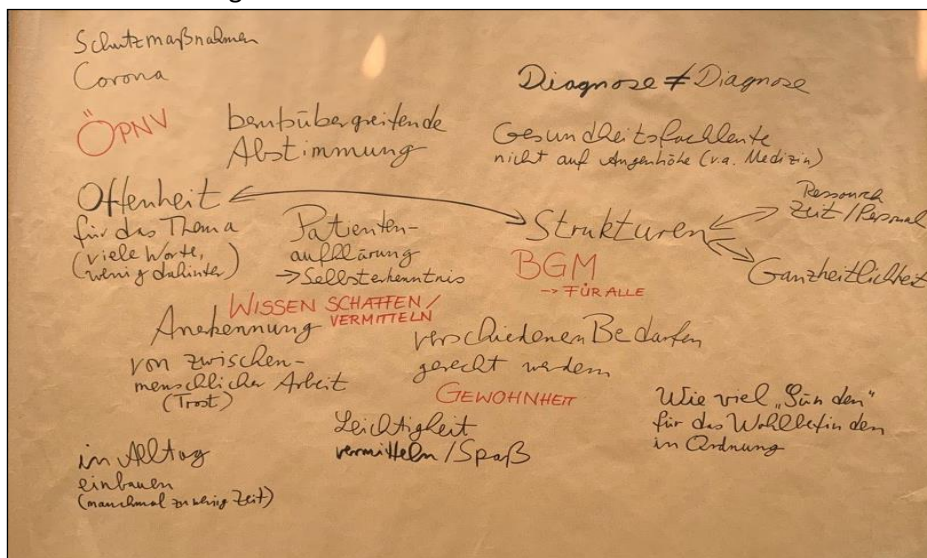 Schutzmaßnahmen
Corona
ÖPNV
berufsübergreifende
Abstimmung
Diagnose ≠ Diagnose
Gesundheitsfachleute
nicht auf Augenhöhe (v.a. Medizin)
Offenheit
für das Thema
(viele Worte,
wenig dahinter)
Patienten-
aufklärung
→ Selbsterkenntnis
Strukturen
BGM
→ FÜR ALLE
Zeit / Personal
Ganzheitlichkeit
WISSEN SCHAFFEN /
VERMITTELN
Anerkennung
von zwischen-
menschlicher Arbeit
(Trost)
verschiedenen Bedarfen
gerecht werden
GEWOHNHEIT
Leichtigkeit
vermitteln / Spaß
Wie viel „Sünden“
für das Wohlbefinden
in Ordnung
in Alltag
einbauen
(manchmal zu wenig Zeit)